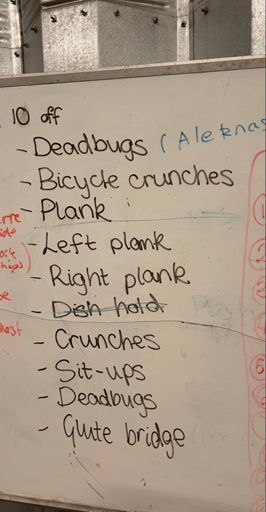 10 off
- Deadbugs (Aleknas
- Bicycle crunches
- Plank
- Left plank
- Right plank
- Dish hold
- Crunches
- Sit-ups
- Deadbugs
- Glute bridge